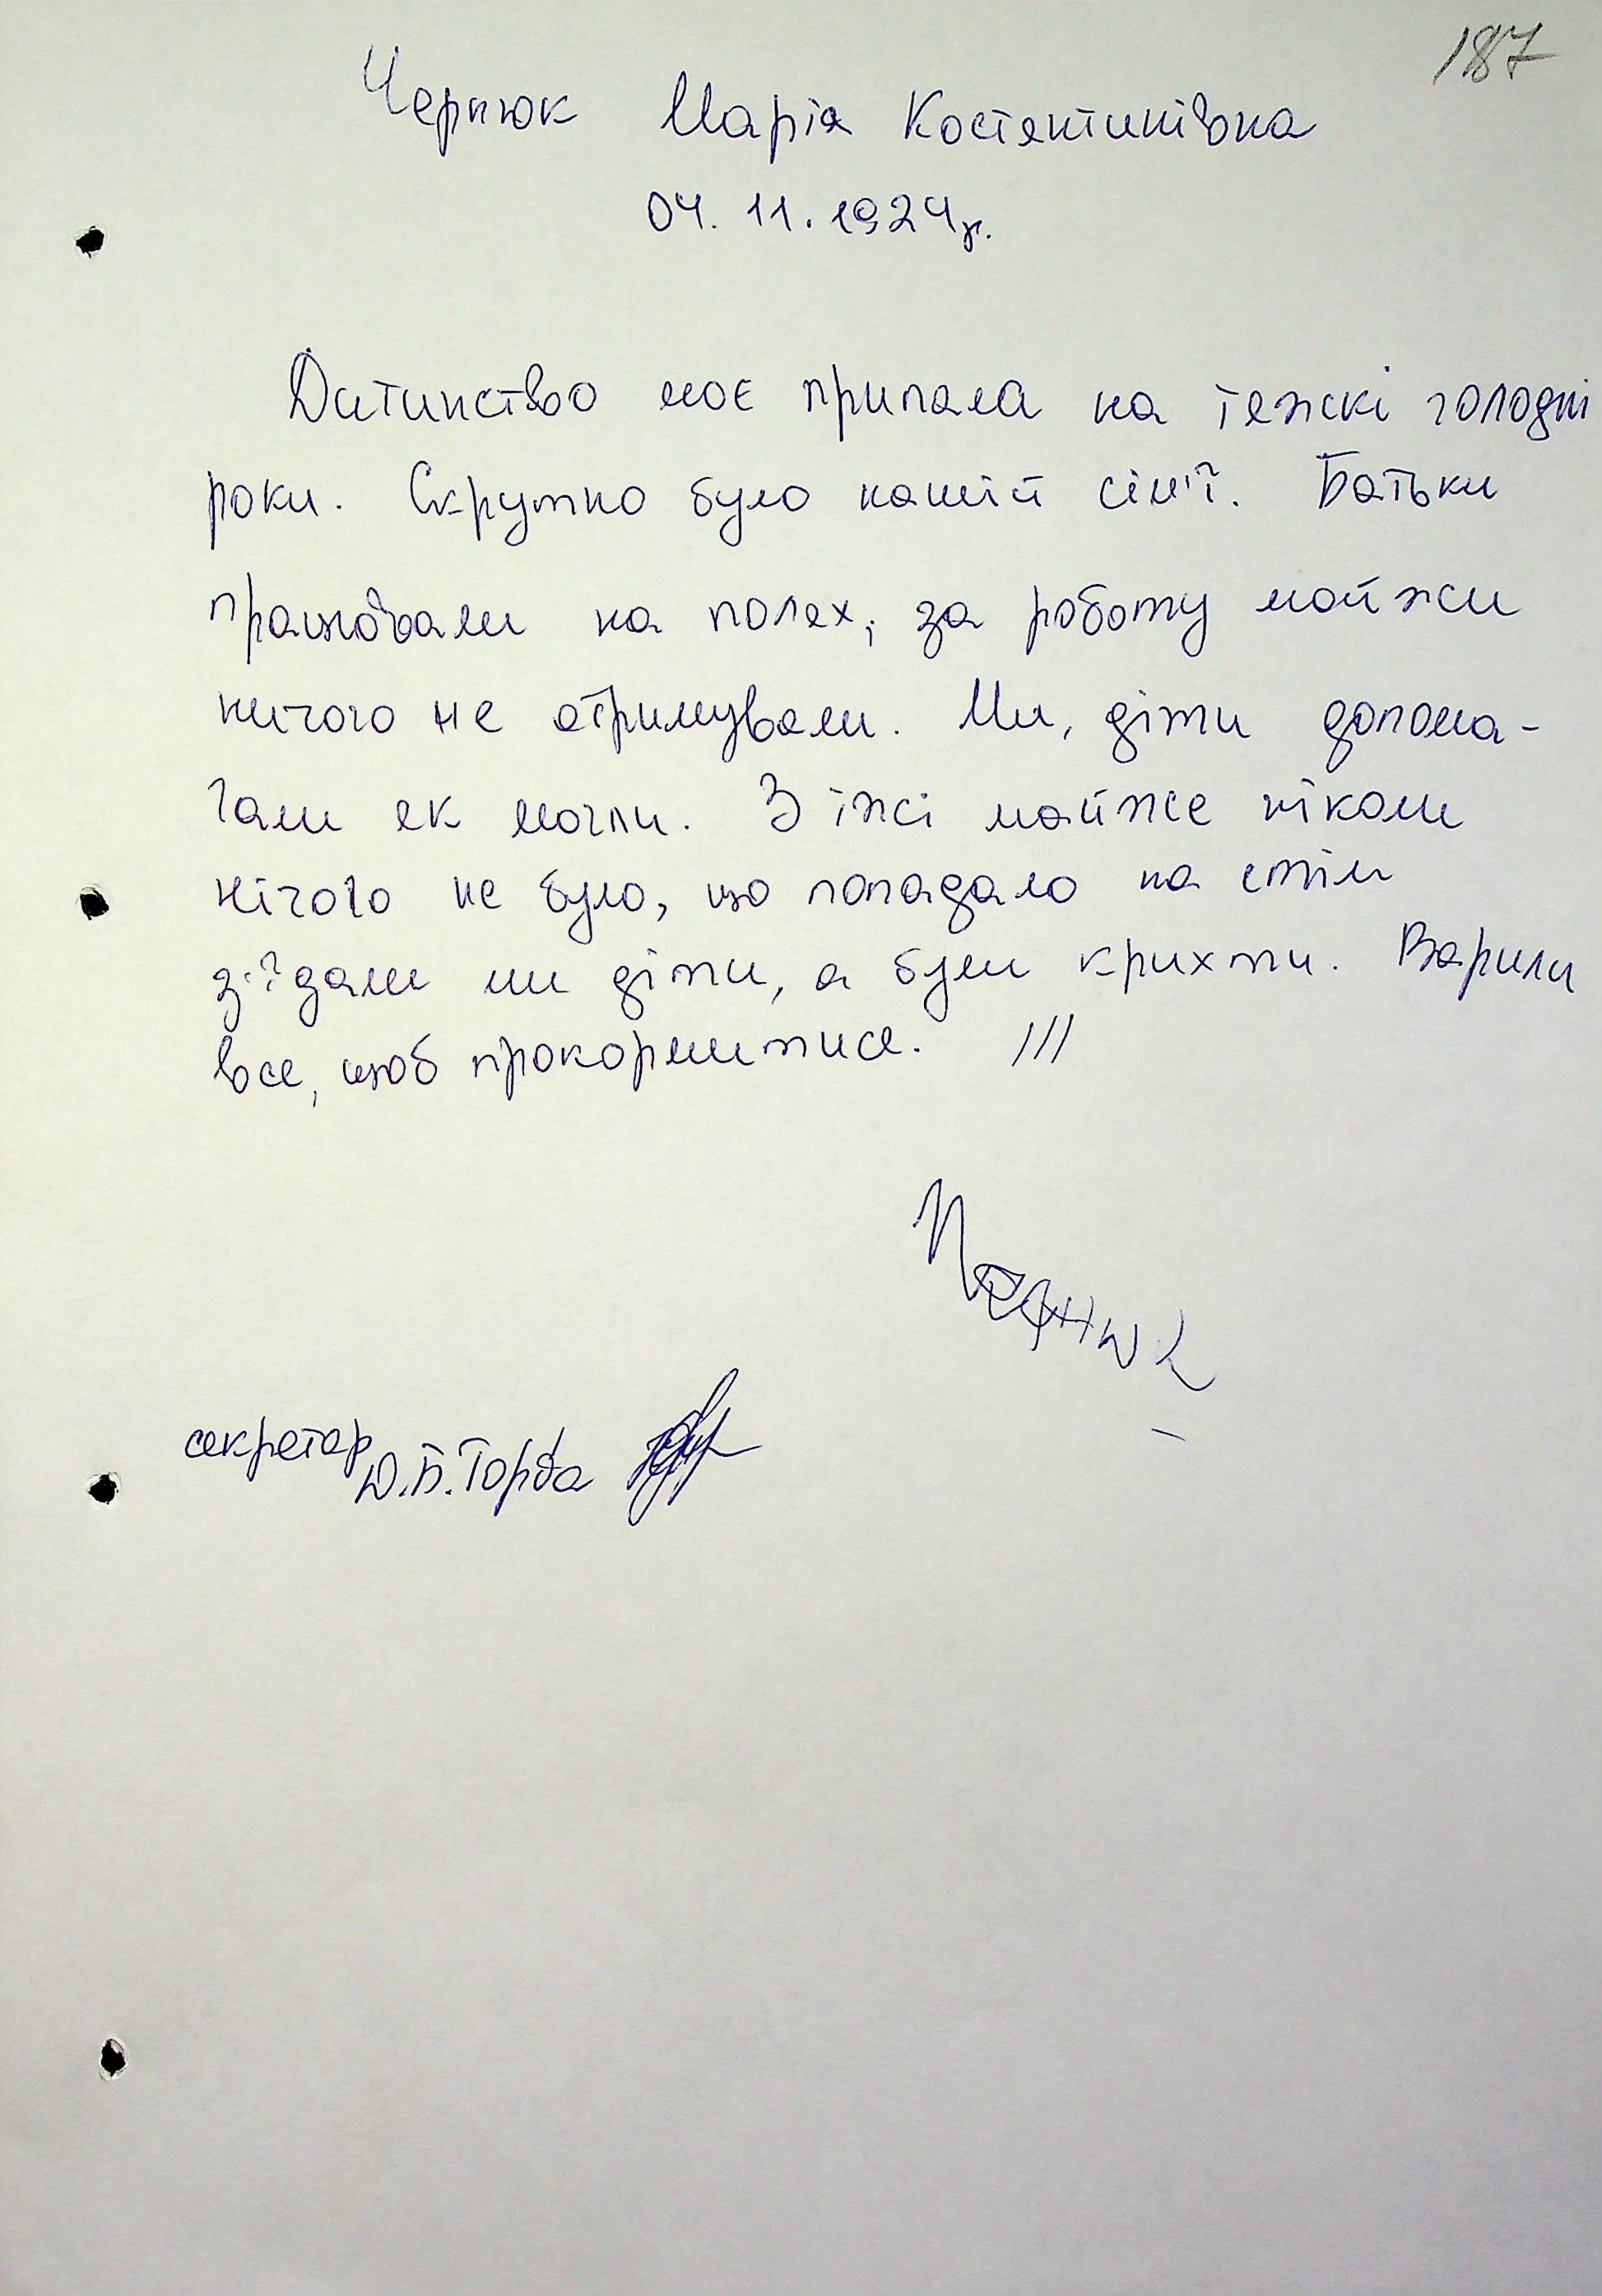 187
Чернюк Марія Костянтинівна
04.11.1924р.
Дитинство моє припала на тяжкі голодні
роки. Скрутно було нашій сім'ї. Батьки
працювали на полях, за роботу майжи
ничого не отримували. Ми, діти допома-
гали як могли. З їжі майже ніколи
нічого не було, що попадало на стіл
з'їдали ми діти, а були крихти. Варили
все, щоб прокормитися. ///
секретар Ю.Б. Горба